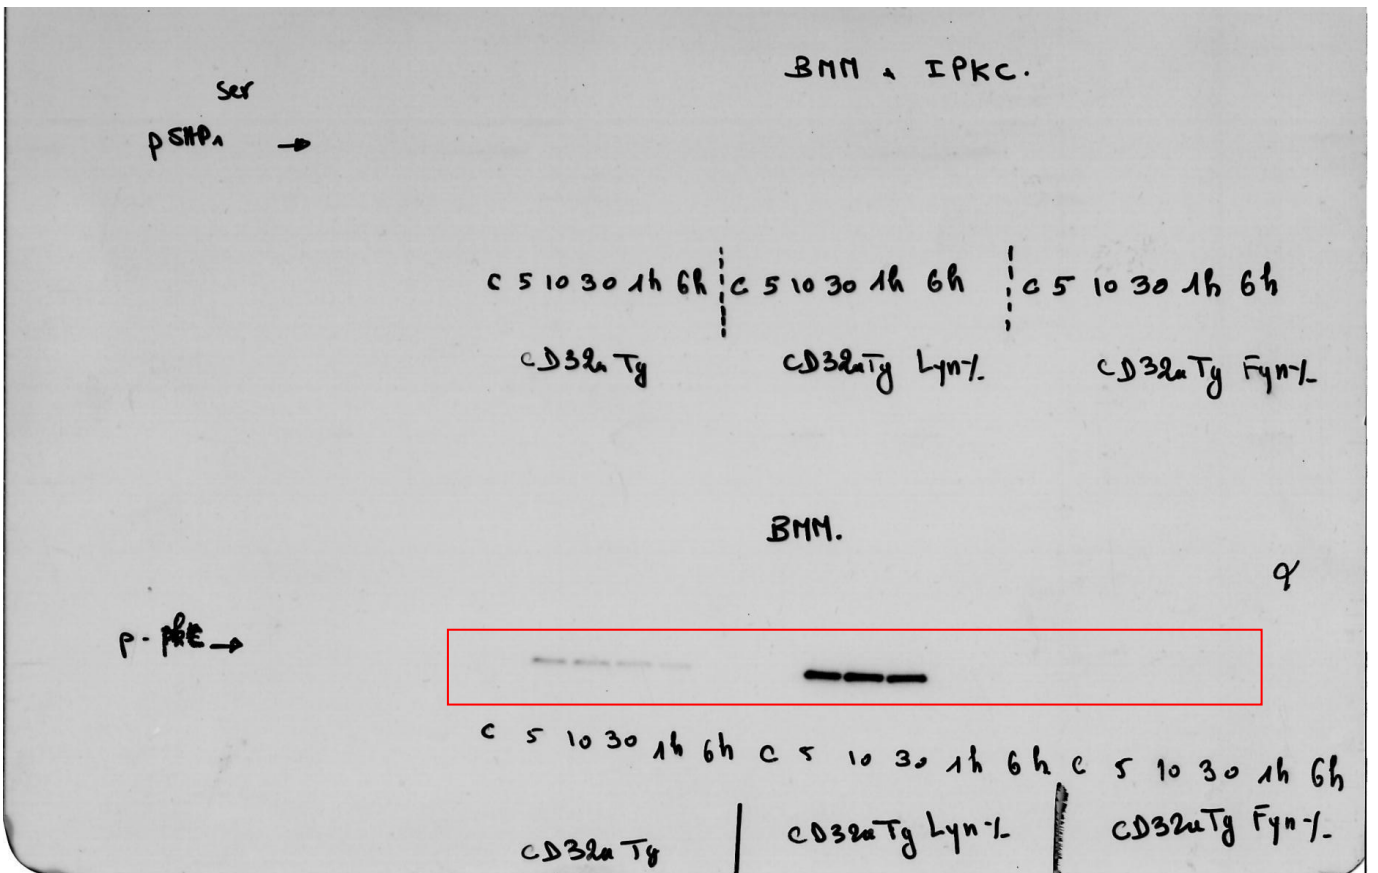 BMM & IPKC.
ser
pSHP1 →
C 5 10 30 1h 6h C 5 10 30 1h 6h C 5 10 30 1h 6h
CD32a Tg CD32aTg Lyn-/- CD32aTg Fyn-/-
BMM.
p- →
C 5 10 30 1h 6h C 5 10 30 1h 6h C 5 10 30 1h 6h
CD32a Tg CD32aTg Lyn-/- CD32aTg Fyn-/-